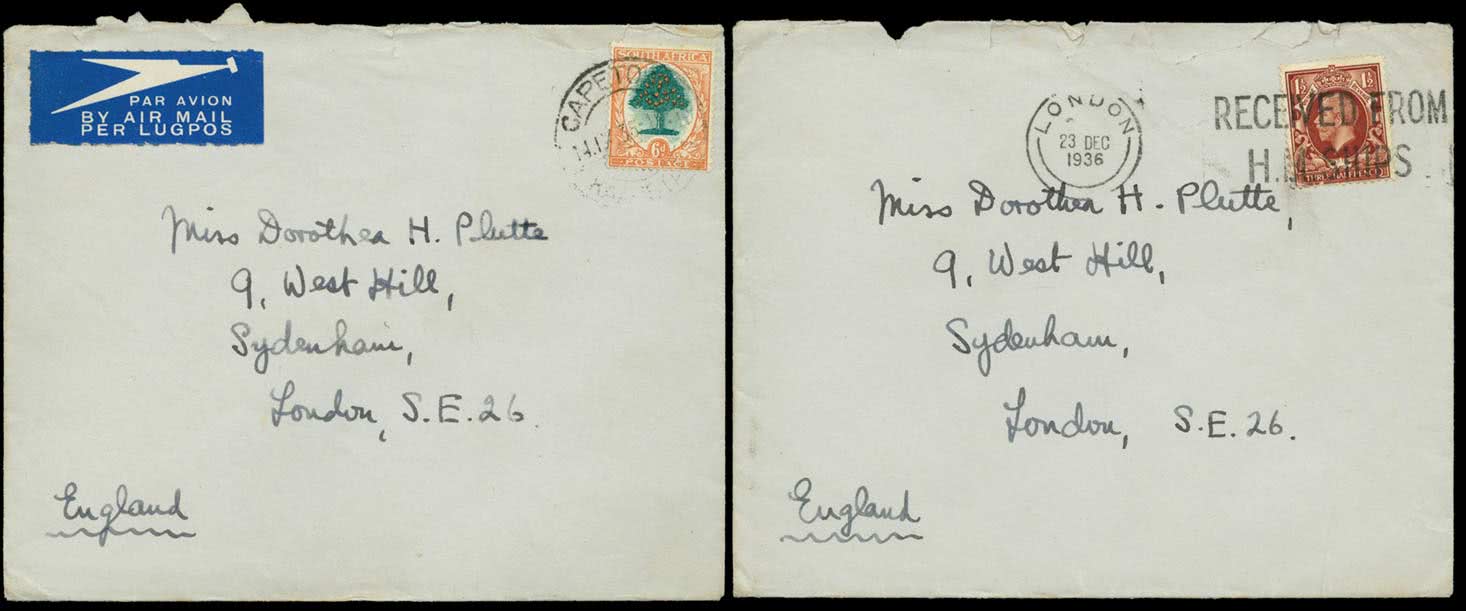 PAR AVION
BY AIR MAIL
PER LUGPOS
SOUTH AFRICA
6d
POSTAGE
Miss Dorothea H. Plutte
9, West Hill,
Sydenham,
London, S.E.26.
England
LONDON
23 DEC
1936
RECEIVED FROM
H.M. SHIPS
1½ 1½
THREE HALFPENCE
Miss Dorothea H. Plutte,
9, West Hill,
Sydenham,
London, S.E.26.
England